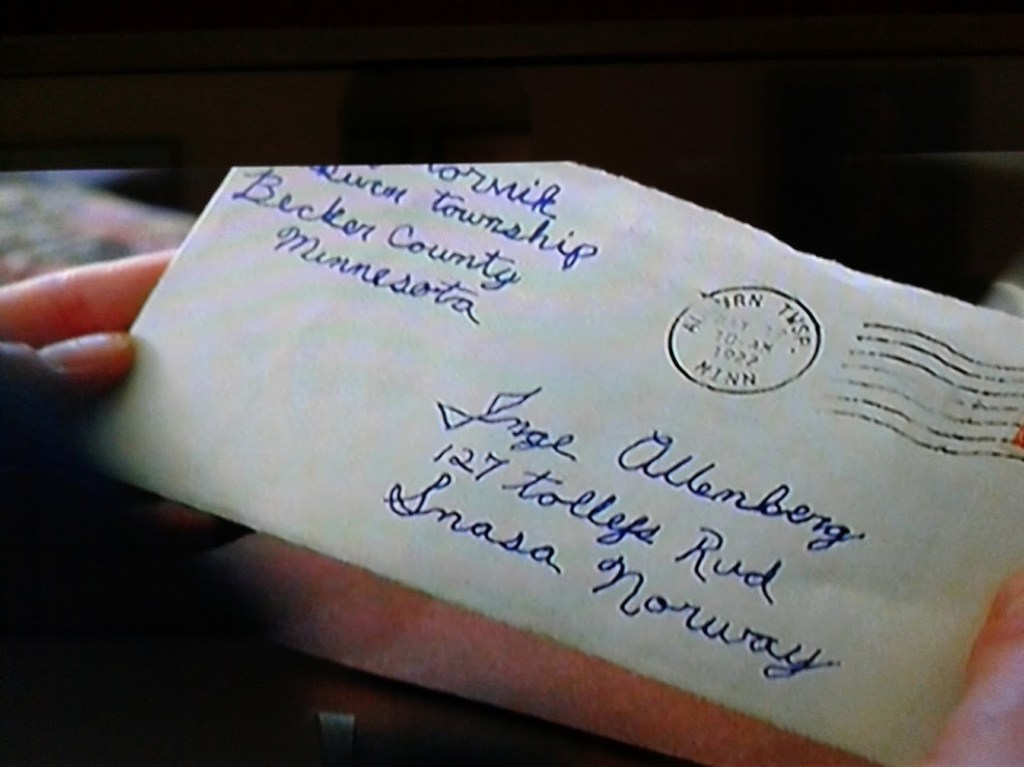 Township
Becker County
Minnesota
TWSP.
10-AM
1922
MINN
Inge Altenberg
127 tollefs Rud
Snasa Norway